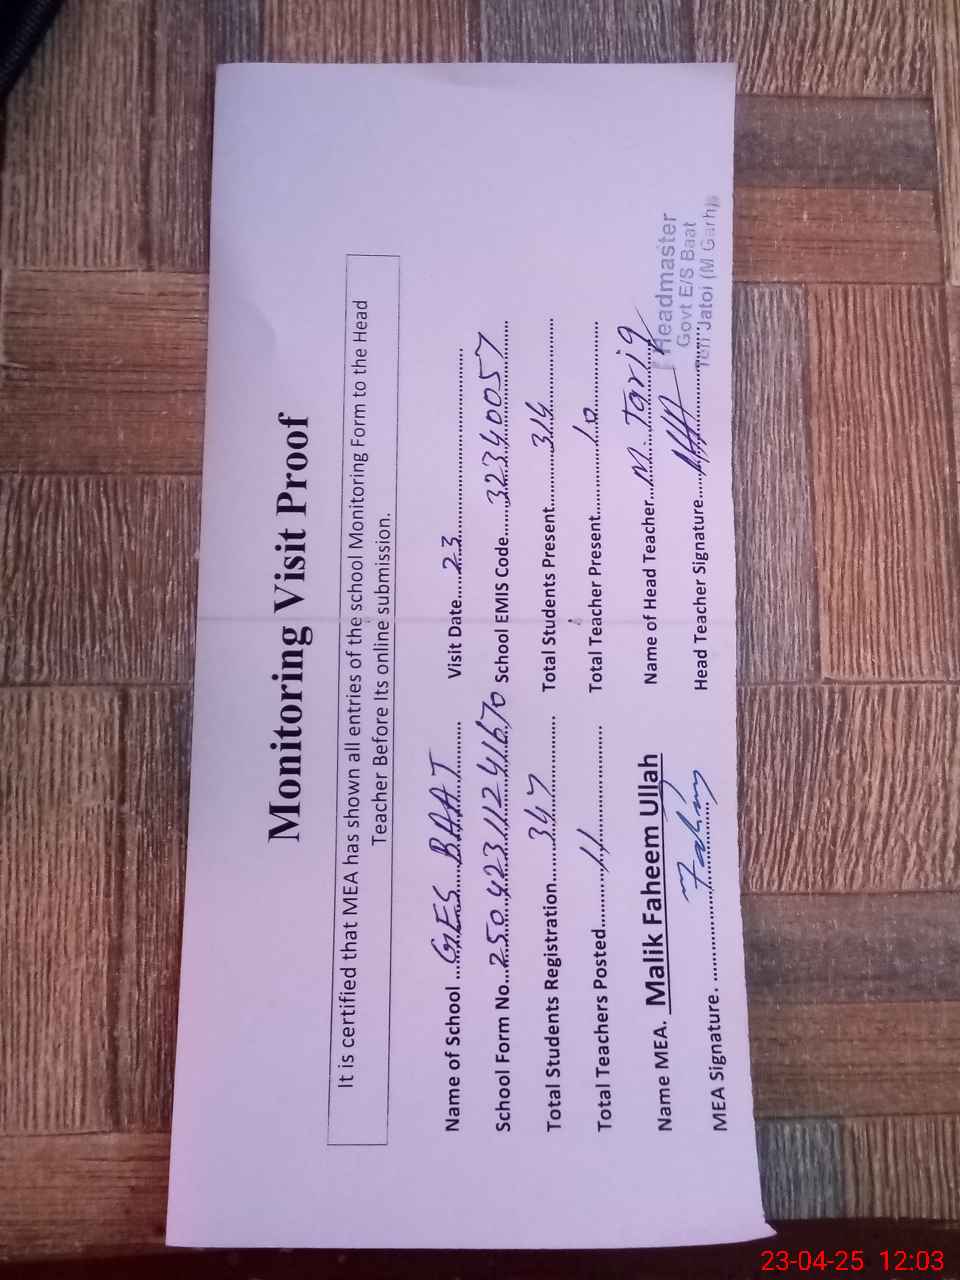 Monitoring Visit Proof
It is certified that MEA has shown all entries of the school Monitoring Form to the Head
Teacher Before Its online submission.
Name of School ...GES BAAT... Visit Date.....23...
School Form No...25042311241670 School EMIS Code......32340057
Total Students Registration......347... Total Students Present......314...
Total Teachers Posted......11... Total Teacher Present......10...
Name MEA. Malik Faheem Ullah Name of Head Teacher...M. Tariq
MEA Signature. ...Faheem... Head Teacher Signature......
Headmaster
Govt E/S Baat
Teh Jatoi (M Garh)
23-04-25 12:03